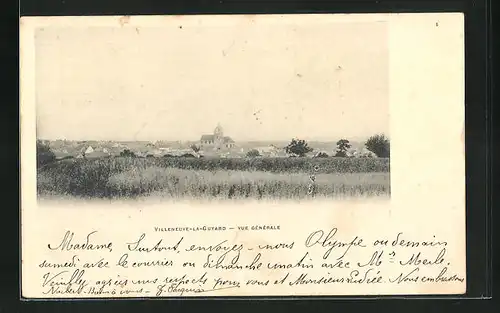 VILLENEUVE-LA-GUYARD — VUE GÉNÉRALE
Madame, Surtout, envoyez-nous Olympe ou demain
samedi avec le courrier ou dimanche matin avec Mr Merle.
Veuillez agréer mes respects pour vous et Monsieur Nous embrassons